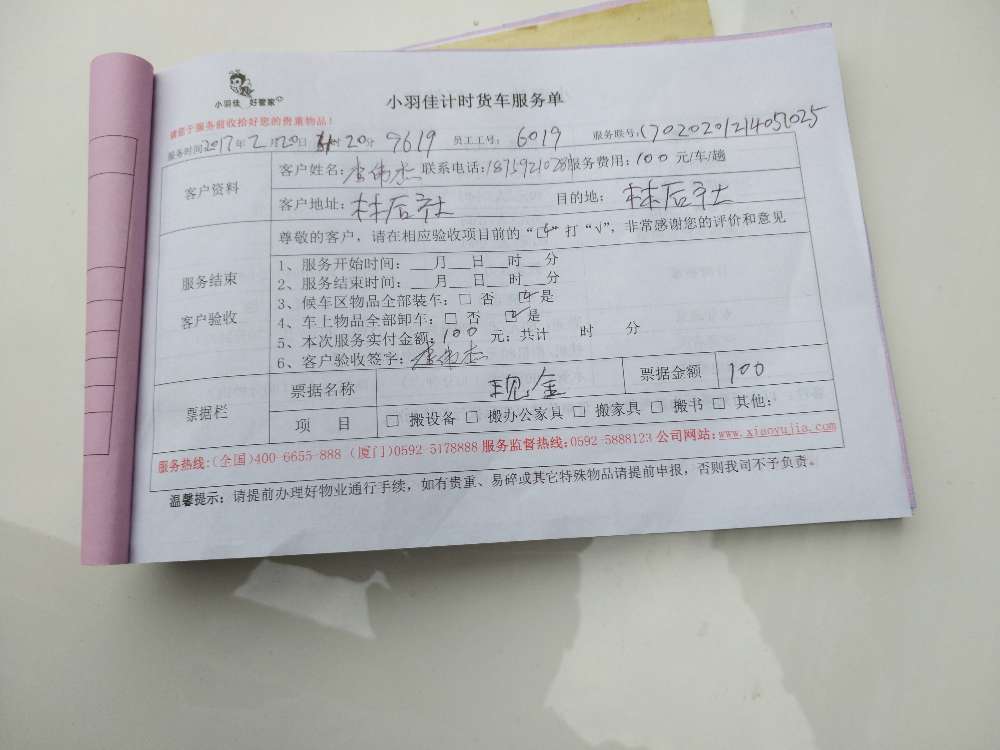 小羽佳 好管家
小羽佳计时货车服务单
请您于服务前收拾好您的贵重物品!
服务时间2017年2月20日 时20分 9619 员工工号: 6019 服务联号:(702020121405025
客户资料
客户姓名: 伟杰 联系电话: 服务费用:100 元/车/趟
客户地址: 林后社 目的地: 林后社
服务结束
客户验收
尊敬的客户,请在相应验收项目前的“□”打“√”,非常感谢您的评价和意见
1、服务开始时间:__月__日__时__分
2、服务结束时间:__月__日__时__分
3、候车区物品全部装车:□ 否 ☑是
4、车上物品全部卸车:□ 否 ☑是
5、本次服务实付金额:100 元;共计 时 分
6、客户验收签字: 伟杰
票据栏
票据名称 现金 票据金额 100
项 目 □ 搬设备 □ 搬办公家具 □ 搬家具 □ 搬书 □ 其他:
服务热线:(全国)400-6655-888 (厦门)0592-5178888 服务监督热线:0592-5888123 公司网站:www.xiaoyujia.com
温馨提示:请提前办理好物业通行手续,如有贵重、易碎或其它特殊物品请提前申报,否则我司不予负责。